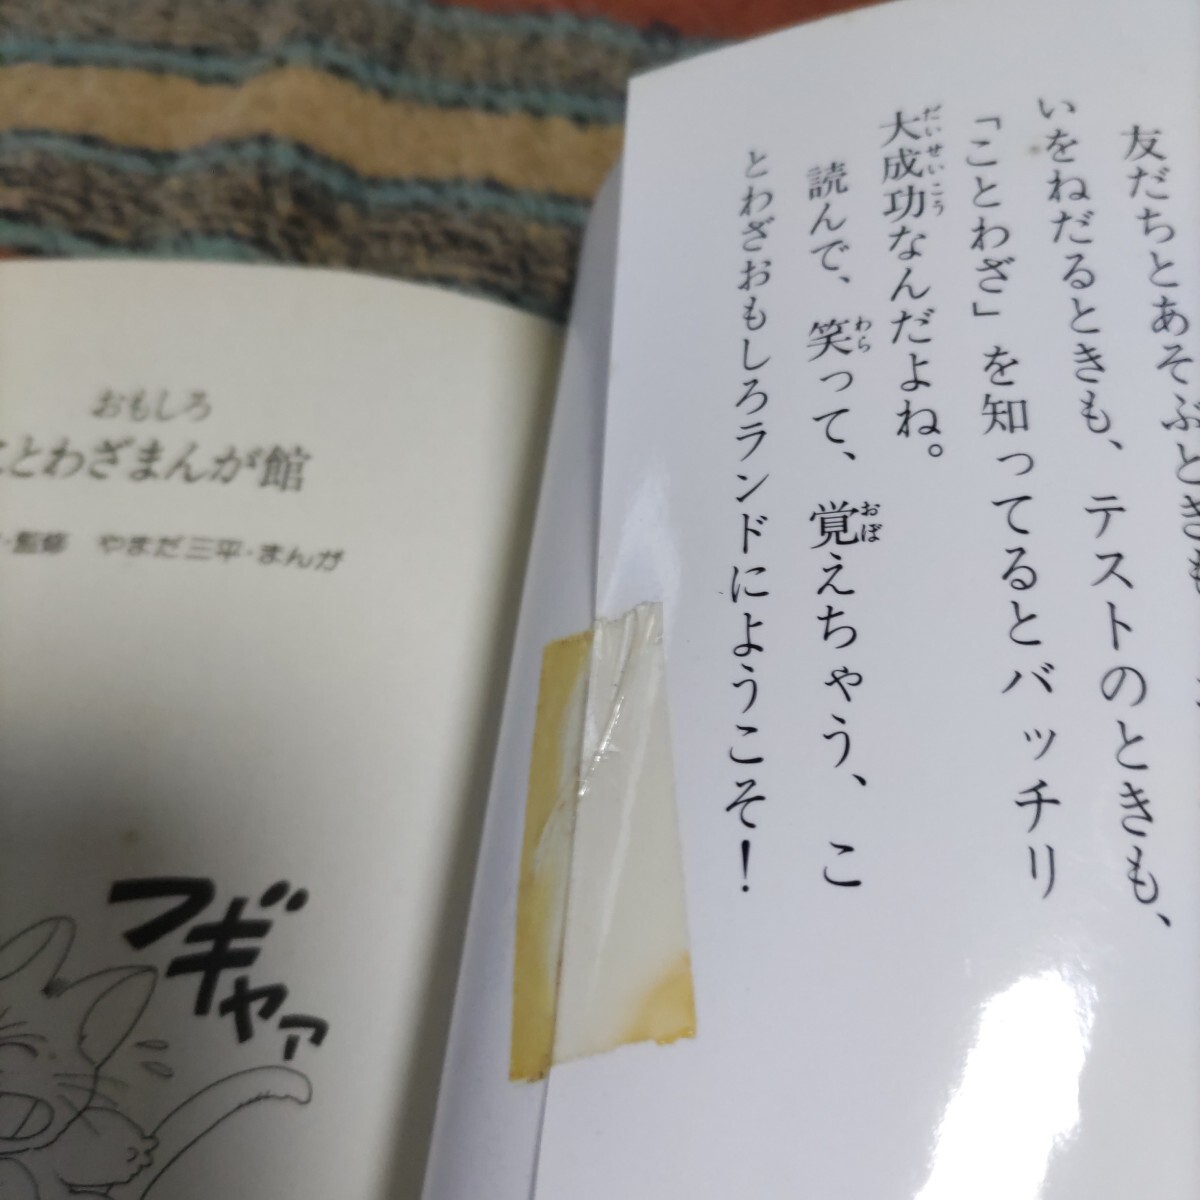 友だちとあそぶとき
いをねだるときも、テストのときも、
「ことわざ」を知ってるとバッチリ
大成功なんだよね。
だいせいこう
読んで、笑って、覚えちゃう、こ
わら
おぼ
とわざおもしろランドにようこそ！
おもしろ
ことわざまんが館
・監修 やまだ三平・まんが
フギャァ